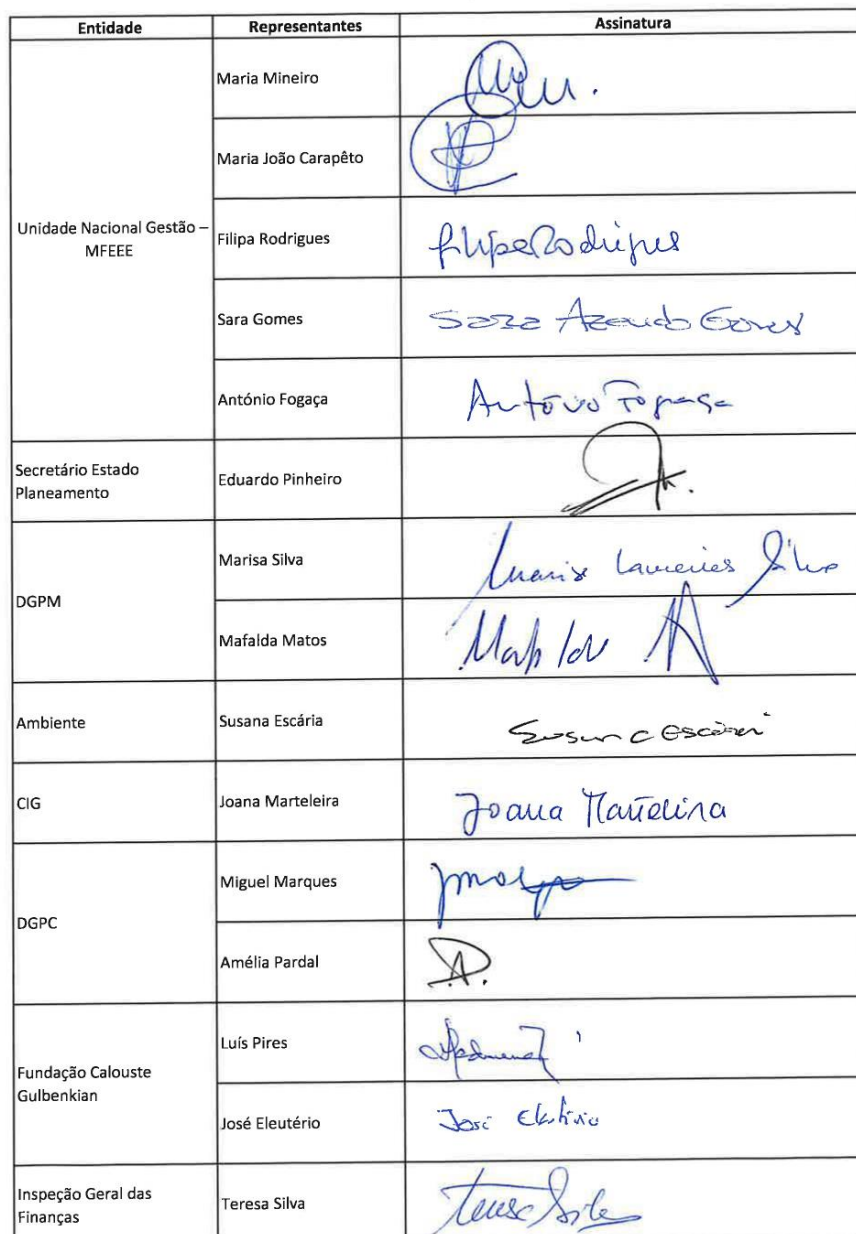 Entidade Representantes Assinatura
Unidade Nacional Gestão –
MFEEE
Maria Mineiro
Maria João Carapêto
Filipa Rodrigues Filipa Rodrigues
Sara Gomes Sara Azevedo Gomes
António Fogaça António Fogaça
Secretário Estado
Planeamento
Eduardo Pinheiro
DGPM
Marisa Silva Marisa Lameiras Silva
Mafalda Matos
Ambiente Susana Escária Susana Escária
CIG Joana Marteleira Joana Marteleira
DGPC
Miguel Marques
Amélia Pardal
Fundação Calouste
Gulbenkian
Luís Pires
José Eleutério José Eleutério
Inspeção Geral das
Finanças
Teresa Silva Teresa Silva